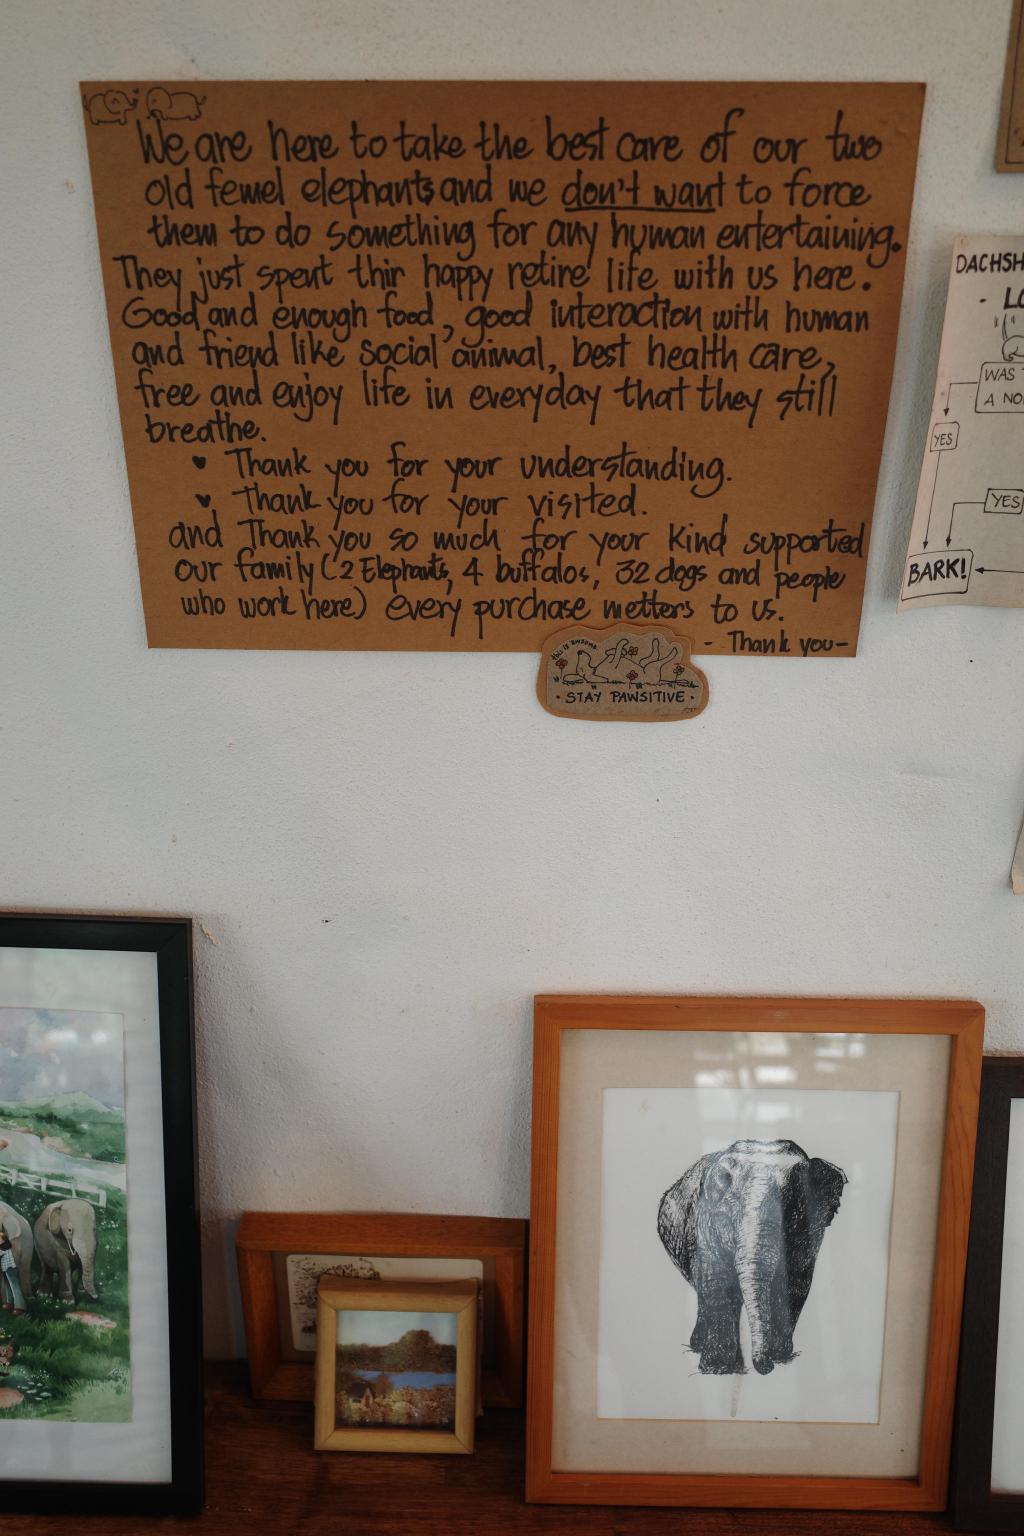 We are here to take the best care of our two
old femel elephants and we don't want to force
them to do something for any human entertaining.
They just spent thir happy retire life with us here.
Good and enough food, good interaction with human
and friend like social animal, best health care,
free and enjoy life in everyday that they still
breathe.
♥ Thank you for your understanding.
♥ Thank you for your visited.
and Thank you so much for your kind supported
our family (2 Elephants, 4 buffalos, 32 dogs and people
who work here) every purchase metters to us.
- Thank you -
this is awsome
· STAY PAWSITIVE ·
DACHSH
- LO
WAS T
A NO
YES
YES
BARK!